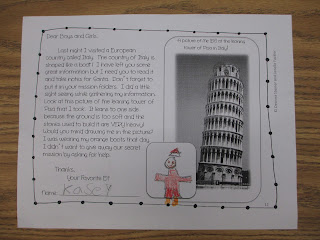 Dear Boys and Girls,
Last night I visited a European
country called Italy. The country of Italy is
shaped like a boot! I have left you some
great information but I need you to read it
and take notes for Santa. Don't forget to
put it in your mission folders. I did a little
sight seeing while gathering my information.
Look at this picture of the leaning tower of
Pisa that I took. It leans to one side
because the ground is too soft and the
stones used to build it are VERY heavy!
Would you mind drawing me in the picture?
I was wearing my orange boots that day.
I didn't want to give away our secret
mission by asking for help.
Thanks,
Your Favorite Elf
Name: Kasey
A picture of me (Elf) at the leaning
tower of Pisa in Italy!